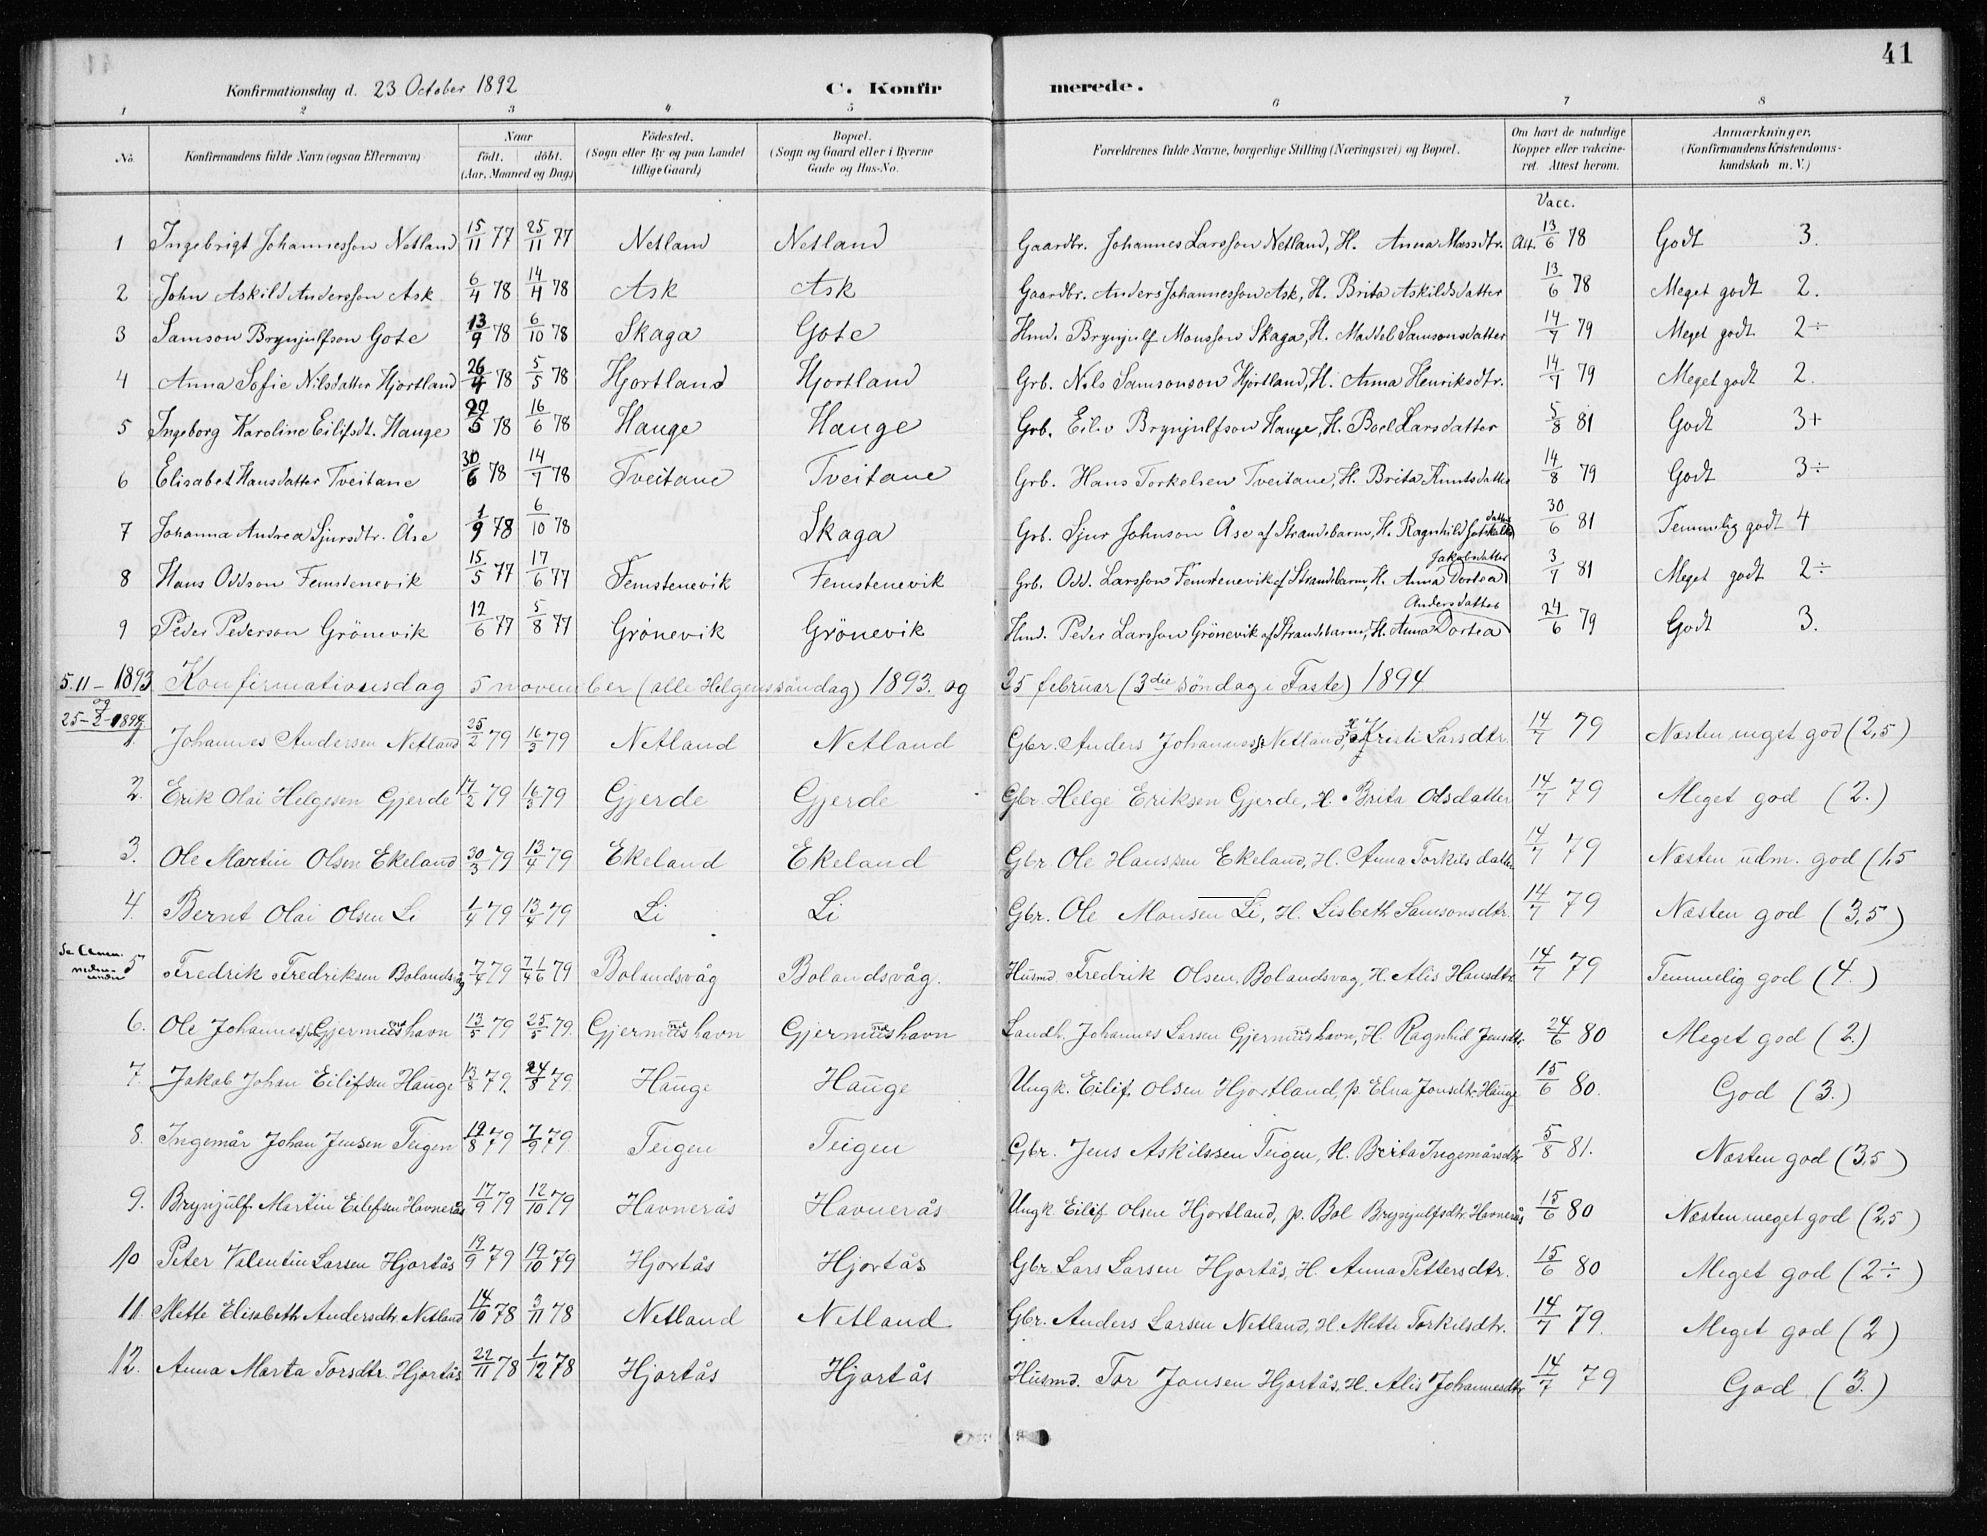 41
Konfirmationsdag d. 23 October 1892 C. Konfir merede.
1 2 3 4 5 6 7 8
No. Konfirmandens fulde Navn (ogsaa Efternavn) Naar født. døbt. (Aar, Maaned og Dag) Fødested. (Sogn eller By og paa Landet tillige Gaard) Bopæl. (Sogn og Gaard eller i Byerne Gade og Hus-No. Forældrenes fulde Navne, borgerlige Stilling (Næringsvei) og Bopæl. Om havt de naturlige Kopper eller vakcineret. Attest herom. Anmærkninger. (Konfirmandens Kristendomskundskab m. V.)
Vacc.
1 Ingebrigt Johannesson Netland 15/11 77 25/11 77 Netland Netland Gaardbr. Johannes Larsson Netland, H. Anna Mossdtr. Att. 13/6 78 Godt 3.
2 John Askild Andersson Ask 6/4 78 14/4 78 Ask Ask Gaardbr. Anders Johannesson Ask, H. Brita Askildsdatter 13/6 78 Meget godt 2.
3 Samson Brynjulfson Gote 13/9 78 6/10 78 Skaga Gote Hmd. Brynjulf Monsson Skaga, H. Maddel Samsonsdatter 14/7 79 Meget godt 2÷
4 Anna Sofie Nilsdatter Hjortland 26/4 78 5/5 78 Hjortland Hjortland Grb. Nils Samsonson Hjørtland, H. Anna Henriksdtr. 14/7 79 Meget godt 2.
5 Ingeborg Karoline Eilifsdt. Hauge 29/5 78 16/6 78 Hauge Hauge Grb. Eiliv Brynjulfson Hauge, H. Boel Larsdatter 5/8 81 Godt 3+
6 Elisabet Hansdatter Tveitane 30/6 78 14/7 78 Tveitane Tveitane Grb. Hans Torkelsen Tveitane, H. Brita Knutsdatter 14/8 79 Godt 3÷
7 Johanna Andrea Sjursdtr. Åse 1/9 78 6/10 78 Skaga Grb. Sjur Johnson Åse af Strandebarm, H. Ragnhild Gotskalksdatter 30/6 81 Temmelig godt 4
8 Hans Oddson Femstenevik 15/5 77 17/6 77 Femstenevik Femstenevik Grb. Odd. Larsson Femstenevik af Strandebarm, H. Anna Dortea Jakobsdatter 3/7 81 Meget godt 2÷
9 Peder Pederson Grönevik 12/6 77 5/8 77 Grönevik Grönevik Hmd. Peder Larsson Grönevik af Strandebarm, H. Anna Dortea Andersdatter 24/6 79 Godt 3.
5.11-1893 Konfirmationsdag 5 november (alle Helgens söndag) 1893. og 25 februar (3die söndag i Faste) 1894
og
25-2-1894
1. Johannes Andersen Netland 25/2 79 16/3 79 Netland Netland Gbr. Anders Johanness. Netland, H. Kristi Larsdtr. 14/7 79 Næsten meget god (2,5)
2. Erik Olai Helgesen Gjerde 17/2 79 16/3 79 Gjerde Gjerde Gbr. Helge Eriksen Gjerde, H. Brita Olsdatter 14/7 79 Meget god (2.)
3. Ole Martin Olsen Ekeland 30/3 79 13/4 79 Ekeland Ekeland Gbr. Ole Hanssen Ekeland, H. Anna Torkilsdatter 14/7 79 Næsten udm. god (1,5
4. Bernt Olai Olsen Li 1/4 79 13/4 79 Li Li Gbr. Ole Monsen Li, H. Lisbeth Samsonsdtr. 14/7 79 Næsten god (3,5)
Se nedenunder 5 Fredrik Fredriksen Bolandsvåg 7/4 79 79 Bolandsvåg Bolandsvåg. Husmd. Fredrik Olsen Bolandsvag, H. Alis Hansdtr. 14/7 79 Temmelig god (4.)
6. Ole Johannessen Gjermundshavn 13/5 79 25/5 79. Gjermundshavn Gjermundshavn Landh. Johannes Larsen Gjermundshavn, H. Ragnhild Jensdtr. 24/6 80 Meget god (2.)
7. Jakob Johan Eilifsen Hauge 13/8 79. 24/8 79. Hauge Hauge Ungk. Eilif Olsen Hjortland, p. Elna Jonsdtr. Hauge 15/6 80. God (3.)
8. Ingemår Johan Jensen Teigen 19/8 79 7/9 79. Teigen Teigen Gbr. Jens Askilssen Teigen, H. Brita Ingemårsdtr. 5/8 81. Næsten god (3,5)
9. Brynjulf Martin Eilefsen Havnerås 17/9 79 12/10 79 Havnerås Havnerås Ungk. Eilif Olsen Hjortland, p. Bol Brynjulfsdtr. Havnerås 15/6 80 Næsten meget god (2,5)
10 Peter Valentin Larsen Hjortås 19/9 79 19/10 79 Hjortås Hjortås Gbr. Lars Larsen Hjortås, H. Anna Pettersdtr. 15/6 80 Meget god (2÷)
11. Mette Elisabeth Andersdtr. Netland 14/10 78 3/11 78 Netland Netland Gbr. Anders Larsen Netland, H. Mette Torkilsdtr. 14/7 79. Meget god (2)
12. Anna Marta Torsdtr. Hjortås 22/11 78 1/12 78 Hjortås Hjortås Husmd. Tor Jonsen Hjortås, H. Alis Johannesdtr 14/7 79 God (3.)